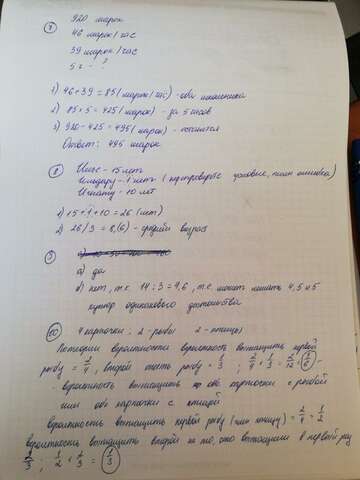 7 920 марок
46 марок/час
39 марок/час
5 ч - ?
1) 46+39=85 (марок/час) - оба школьника
2) 85×5=425 (марок) - за 5 часов
3) 920-425=495 (марок) - останется
Ответ: 495 марок
8 - 15 лет
Ильдару - 1 лет (проверьте условие, там ошибка)
Игнату - 10 лет
1) 15+1+10=26 (лет)
2) 26/3=8,(6) - средний возраст
9
а) да
б) нет, т.к. 14:3=4,6, т.е. может лежать 4,5 и 5
купюр одинакового достоинства
10 4 карточки: 2-рыбы 2-птицы
По теории вероятности вероятность вытащить первой
рыбу = 2/4, второй тоже рыбу = 1/3; 2/4 × 1/3 = 2/12 = 1/6 -
- вероятность вытащить обе карточки с рыбой
или обе карточки с птицей
Вероятность вытащить первой рыбу (или птицу) = 2/4 = 1/2
вероятность вытащить второй не то, что вытащили в первый раз
2/3; 1/2 × 2/3 = 1/3